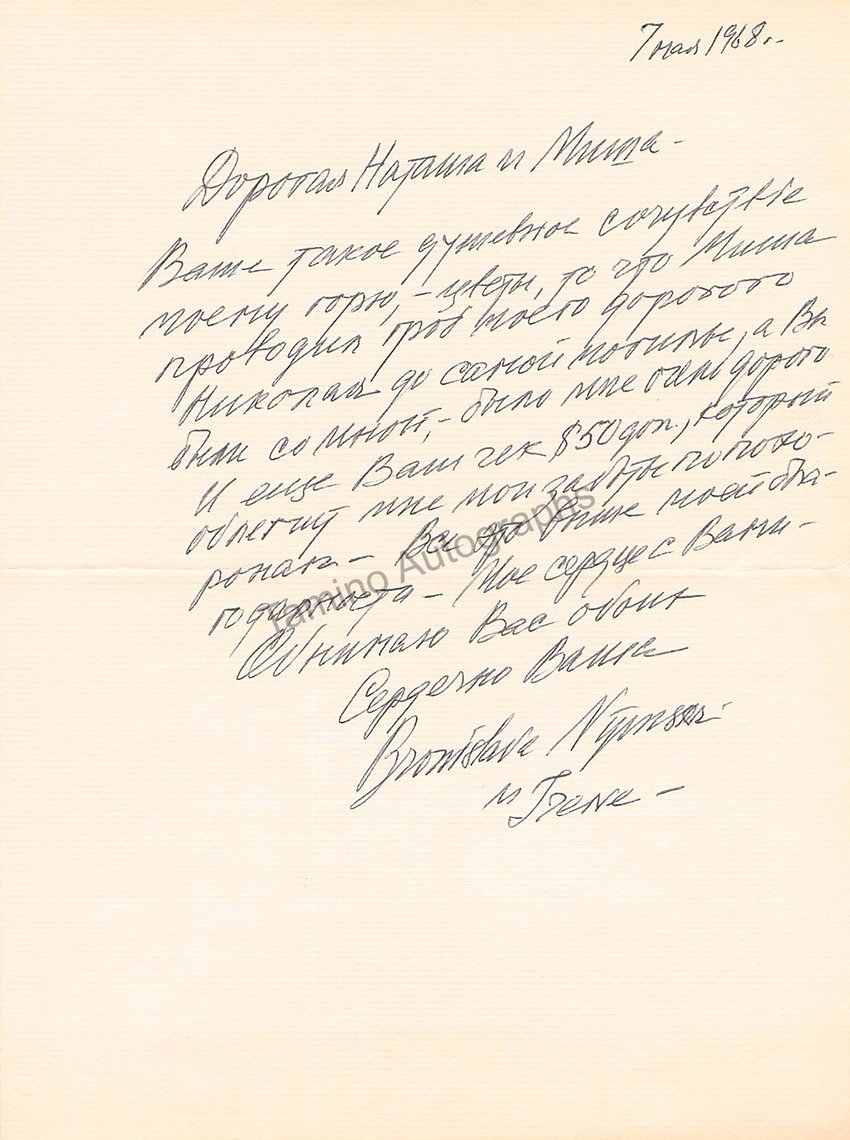 7 мая 1968 г.
Дорогая Наташа и Миша -
Ваше такое душевное сочувствiе
моему горю, - цветы, то что Миша
проводил гроб моего дорогого
Николая до самой могилы, а Вы
были со мной, - было мне очень дорого
И еще Ваш чек $50 дол., который
облегчил мне мои заботы по похо-
ронам - Все это выше моей бла-
годарности - Мое сердце с Вами -
Обнимаю Вас обоих
Сердечно Ваша
Bronislava Nijinska
и Irene -
Tamino Autographs